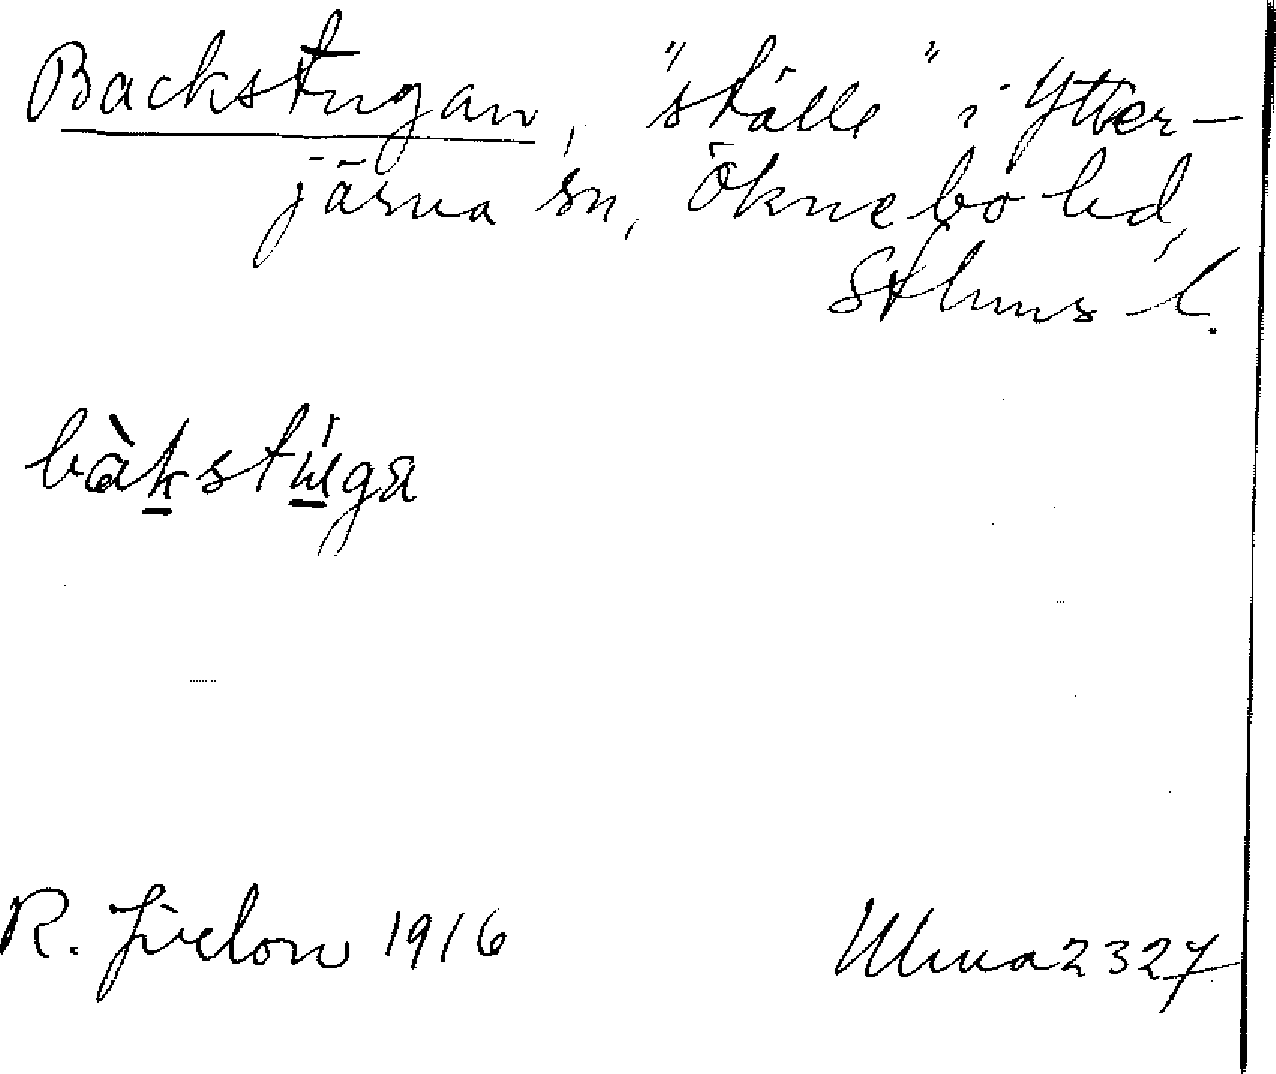 Backstugan, "ställe" i Ytter-
järna sn, Öknebo hd,
Sthms l.
bàkstúga
R. Jirlow 1916
Ulma 2327